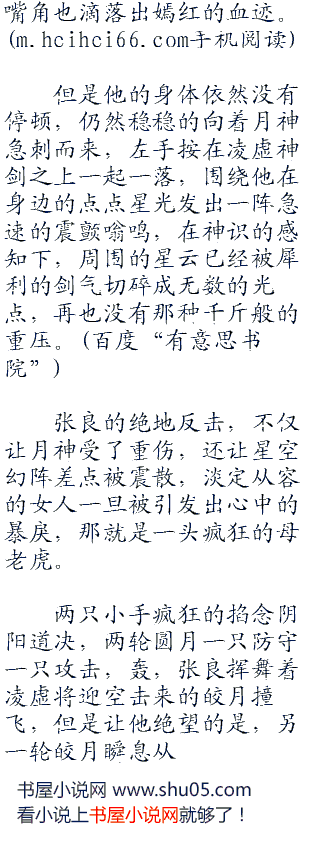 嘴角也滴落出嫣红的血迹。
(m.hcihci66.com手机阅读)
但是他的身体依然没有
停顿，仍然稳稳的向着月神
急刺而来，左手按在凌虚神
剑之上一起一落，围绕他在
身边的点点星光发出一阵急
速的震颤嗡鸣，在神识的感
知下，周围的星云已经被犀
利的剑气切碎成无数的光
点，再也没有那种千斤般的
重压。(百度“有意思书
院”)
张良的绝地反击，不仅
让月神受了重伤，还让星空
幻阵差点被震散，淡定从容
的女人一旦被引发出心中的
暴戾，那就是一头疯狂的母
老虎。
两只小手疯狂的掐念阴
阳道决，两轮圆月一只防守
一只攻击，轰，张良挥舞着
凌虚将迎空击来的皎月撞
飞，但是让他绝望的是，另
一轮皎月瞬息从
书屋小说网 www.shu05.com
看小说上书屋小说网就够了！